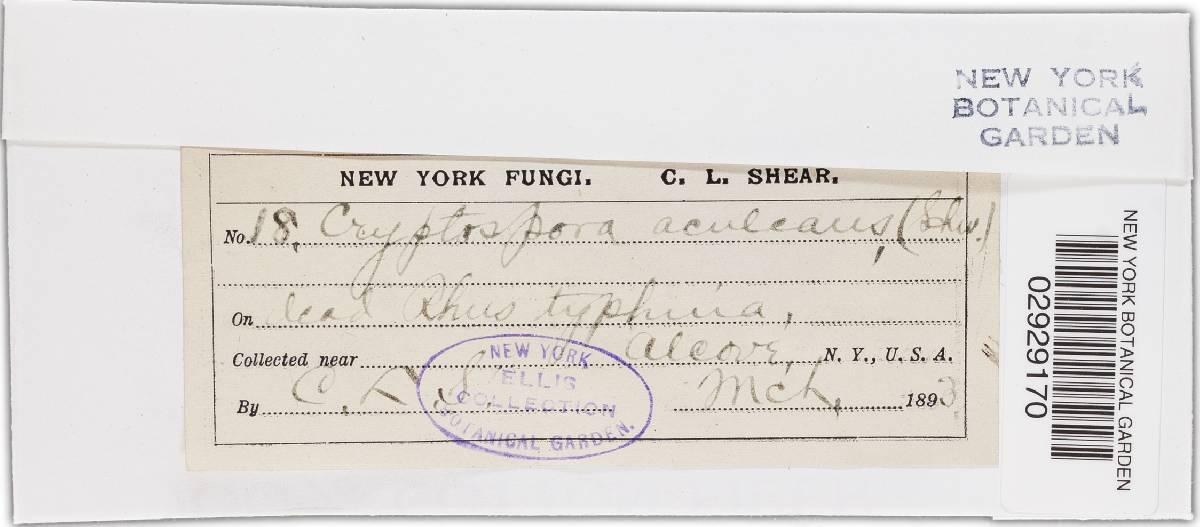 NEW YORK
BOTANICAL
GARDEN
NEW YORK FUNGI. C. L. SHEAR.
No. 18, Cryptospora aculeans, (Schw.)
On dead Rhus typhina,
Collected near Alcove, N. Y., U. S. A.
By C. L. S. Mch, 1893.
NEW YORK
ELLIS
COLLECTION
BOTANICAL GARDEN.
NEW YORK BOTANICAL GARDEN
02929170